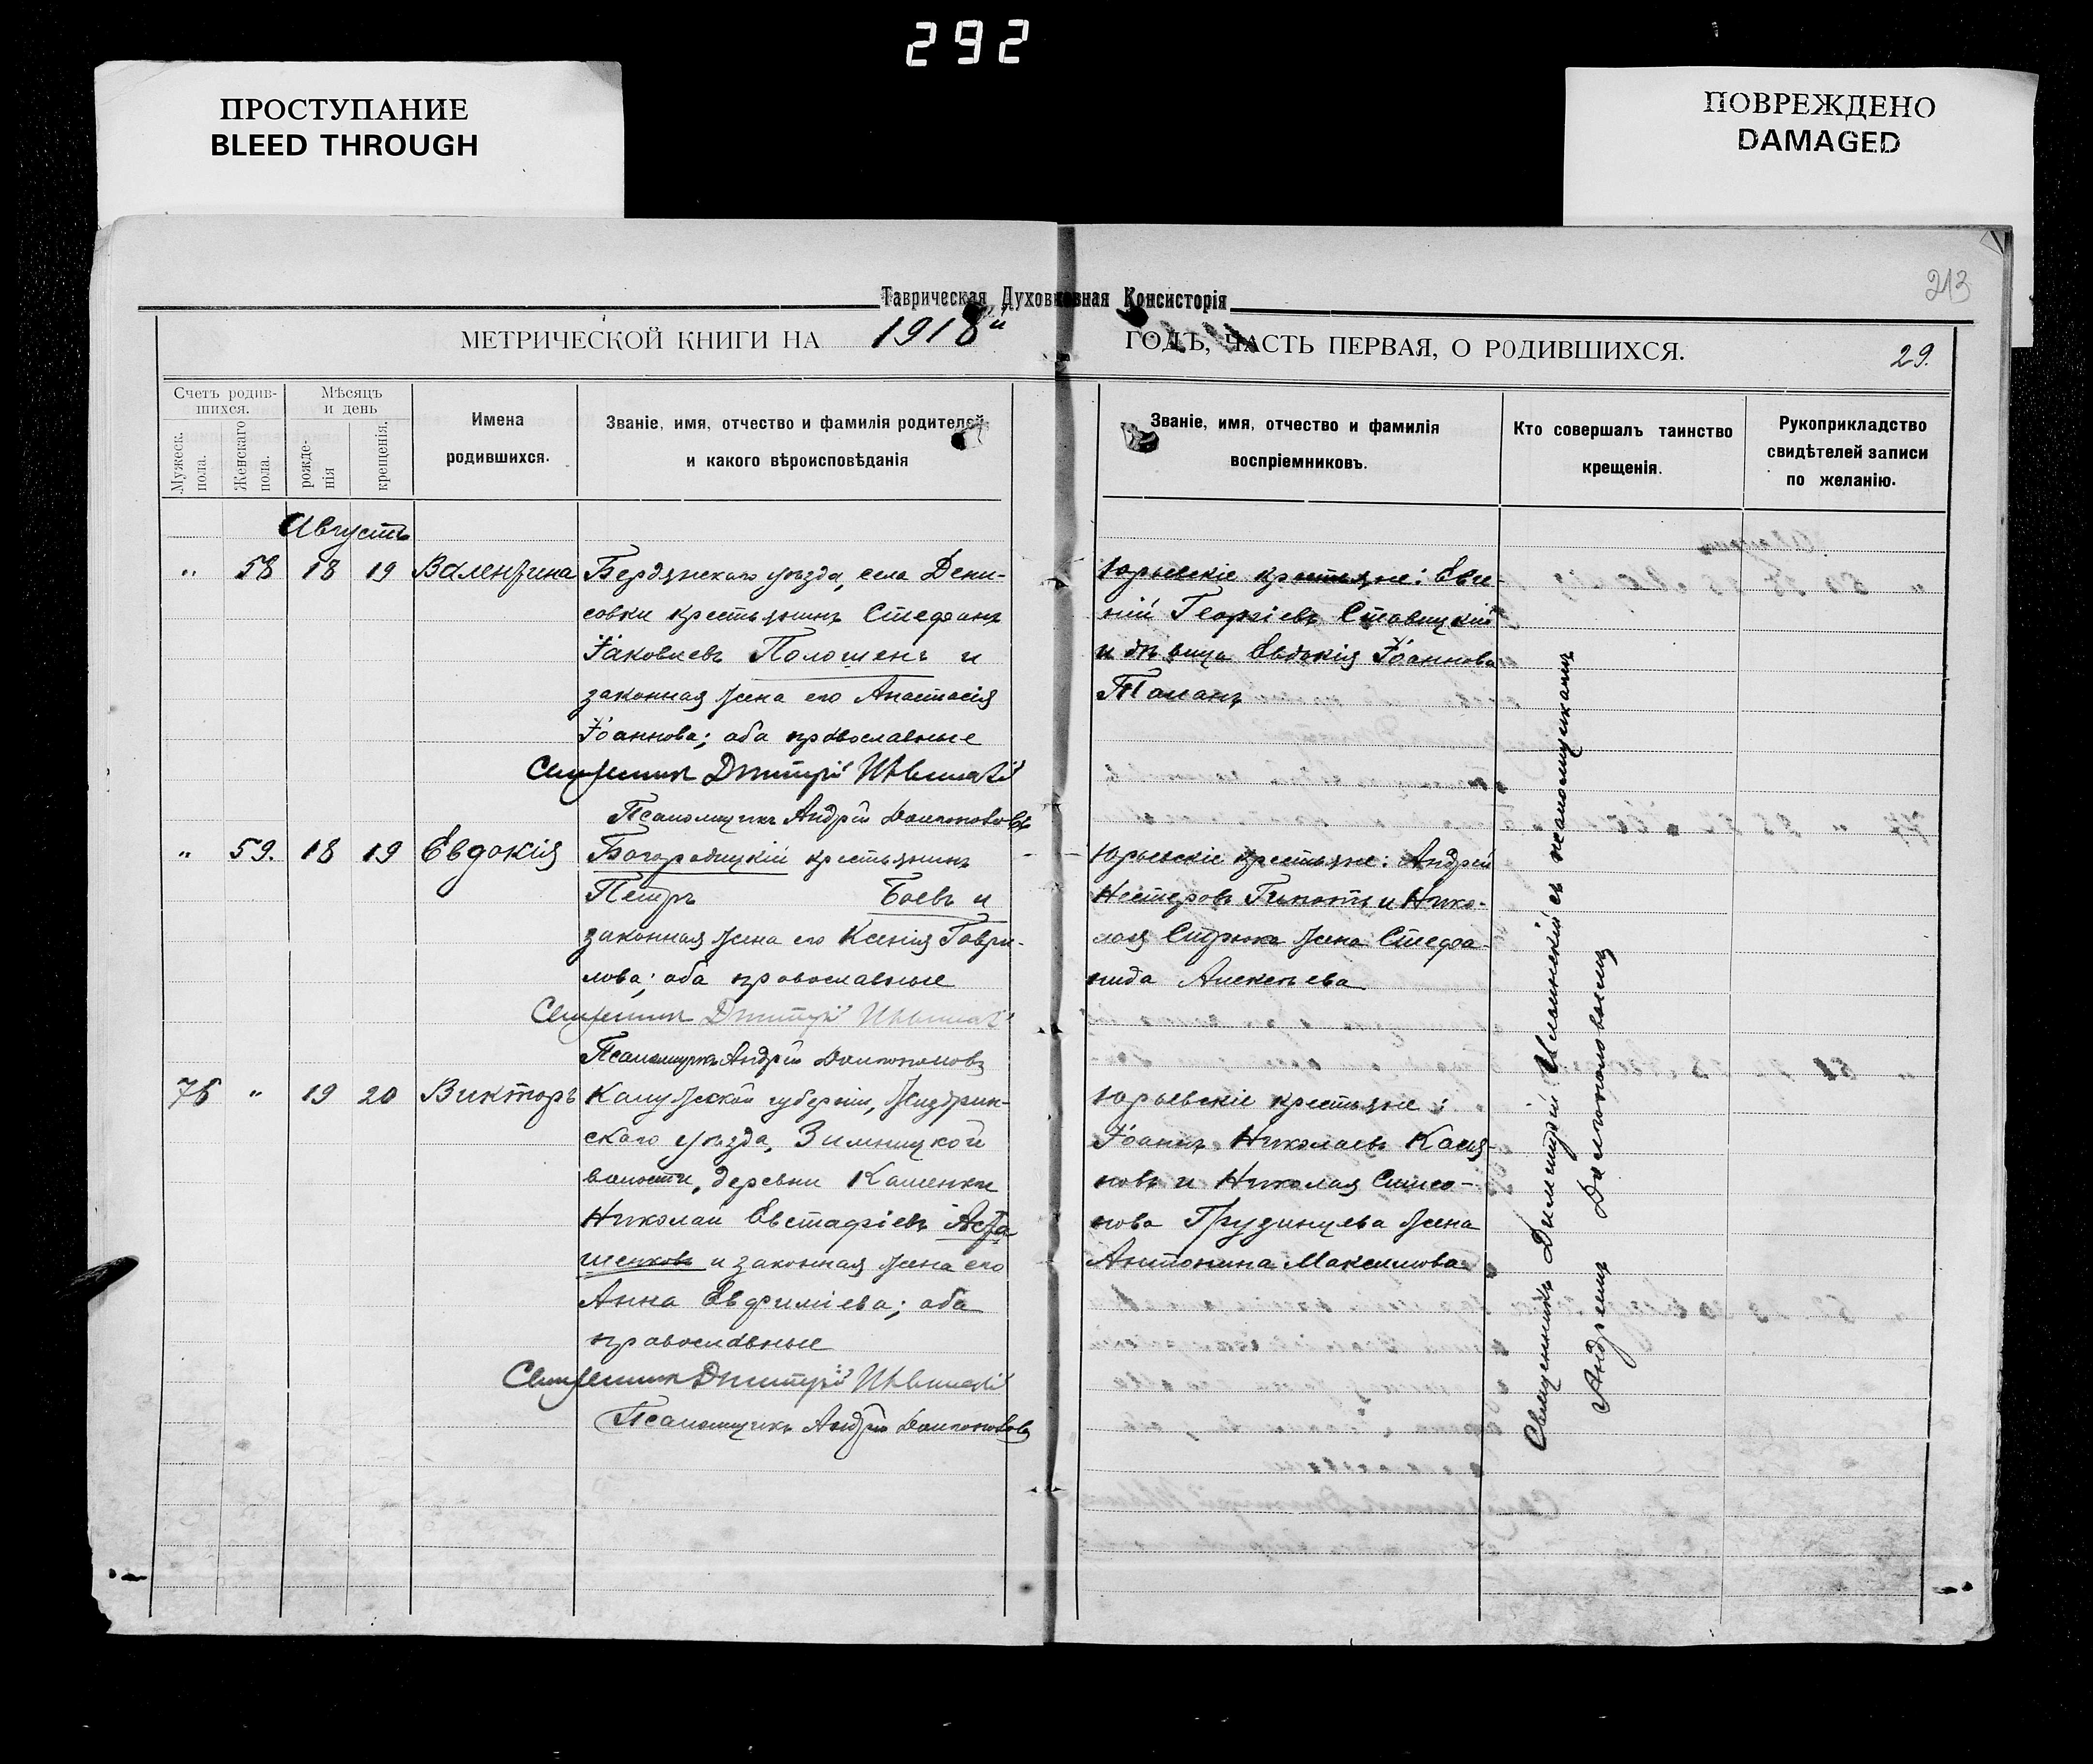 292
ПРОСТУПАНИЕ
BLEED THROUGH
ПОВРЕЖДЕНО
DAMAGED
213
Таврическая Духовная Консисторія
МЕТРИЧЕСКОЙ КНИГИ НА 1918й
ГОДЪ, ЧАСТЬ ПЕРВАЯ, О РОДИВШИХСЯ.
29.
Счетъ родив-
шихся.
Мужеск.
пола.
Женскаго
пола.
Мѣсяцъ
и день
рожде-
нія
крещенія.
Имена
родившихся.
Званіе, имя, отчество и фамилія родителей
и какого вѣроисповѣданія
Званіе, имя, отчество и фамилія
воспріемниковъ.
Кто совершалъ таинство
крещенія.
Рукоприкладство
свидѣтелей записи
по желанію.
Августъ
" 58 18 19 Валентина
Бердянскаго уѣзда, села Дени-
совки крестьянинъ Стефанъ
Іаковлевъ и
законная жена его Анастасія
Іоаннова; оба православные
Священник Дмитрій
Псаломщикъ Андрей
Юрьевскіе крестьяне: Евге-
ній Георгіевъ Ставицкій
и дѣвица Евдокія Іоаннова
" 59. 18 19 Евдокія
Богородицкій крестьянинъ
Петръ Боевъ и
законная жена его Ксенія Гаври-
лова; оба православные
Священник Дмитрій
Псаломщикъ Андрей
Юрьевскіе крестьяне: Андрей
Нестеровъ и Нико-
лая жена Стефа-
нида Алексѣева
76 " 19 20 Викторъ
Калужской губерніи, Жиздрин-
скаго уѣзда, Зимницкой
волости, деревни Каменки
Николай Евстафіевъ Аста
шенковъ и законная жена его
Анна Евфиміева; оба
православные
Священник Дмитрій
Псаломщикъ Андрей
Юрьевскіе крестьяне:
Іоаннъ Николаевъ Кася-
новъ и Николая Симео-
нова Грудинцева жена
Антонина Максимова
Священникъ Димитрій съ псаломщикомъ
Андреемъ